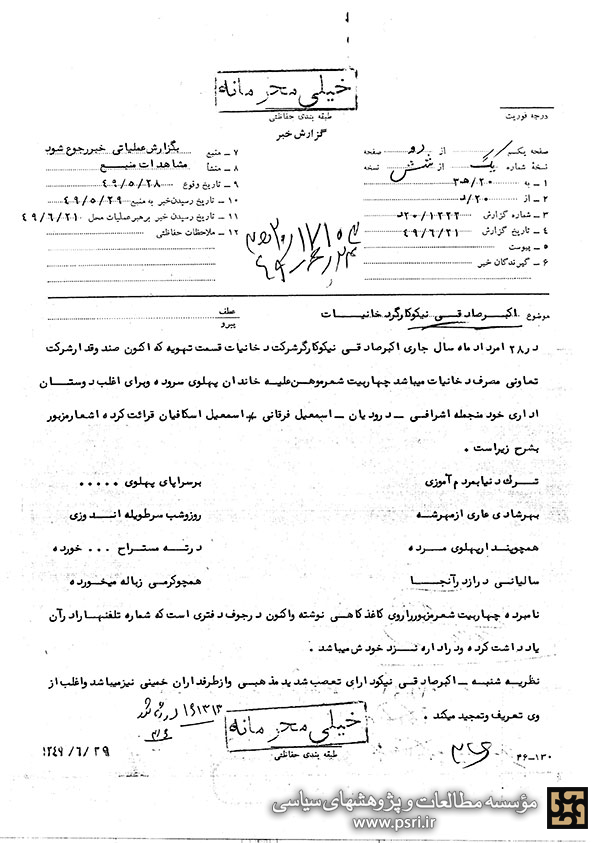 خیلی محرمانه
طبقه بندی حفاظتی
گزارش خبر
درجه فوریت
صفحه یکم از دو صفحه
نسخهٔ شماره یک از شش نسخه
۱ ـ به ۲۰/ه۳
۲ ـ از ۲۰/د
۳ ـ شماره گزارش ۲۰/۱۲۲۲د
۴ ـ تاریخ گزارش ۴۹/۶/۲۱
۵ ـ پیوست
۶ ـ گیرندگان خبر
۷ ـ منبع بگزارش عملیاتی خبر رجوع شود
۸ ـ منشأ مشاهدات منبع
۹ ـ تاریخ وقوع ۴۹/۵/۲۸
۱۰ ـ تاریخ رسیدن خبر به منبع ۴۹/۵/۲۹
۱۱ ـ تاریخ رسیدن خبر برهبر عملیات محل ۴۹/۶/۲۱
۱۲ ـ ملاحظات حفاظتی
موضوع اکبر صادقی نیکو کارگر دخانیات
عطف
پیرو
در ۲۸ امرداد ماه سال جاری اکبر صادقی نیکو کارگر شرکت دخانیات قسمت تهویه که اکنون صندوقدار شرکت
تعاونی مصرف دخانیات میباشد چهار بیت شعر موهن علیه خاندان پهلوی سروده و برای اغلب دوستان
اداری خود منجمله اشرافی ـ درودیان ـ اسمعیل فرقانی + اسمعیل اسکافیان قرائت کرده اشعار مزبور
بشرح زیر است .
ترک دنیا بمردم آموزی برسراپای پهلوی .....
بهرشادی عاری از مهر شه روز و شب سر طویله اندوزی
همچو پندار پهلوی مرده در ته مستراح ... خورده
سالیانی دراز در آنجا همچو کرمی زباله میخورده
نامبرده چهار بیت شعر مزبور را روی کاغذ کاهی نوشته و اکنون در جوف دفتری است که شماره تلفنها را در آن
یادداشت کرده و در اداره نزد خودش میباشد .
نظریه شنبه ـ اکبر صادقی نیکو دارای تعصب شدید مذهبی و از طرفداران خمینی نیز میباشد و اغلب از
وی تعریف و تمجید میکند .
خیلی محرمانه
طبقه بندی حفاظتی
۱۳۴۹/۶/۲۹
۴۶-۱۳۰
مؤسسه مطالعات و پژوهشهای سیاسی
www.psri.ir